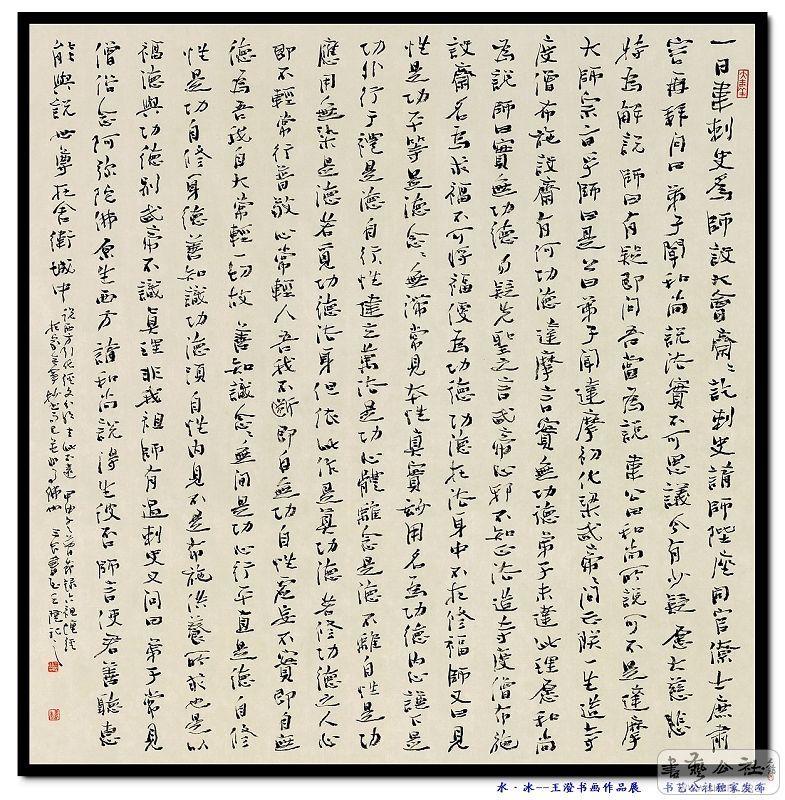 一日韋刺史為師設大會齋〻訖刺史請師陞座同官僚士庶肅
容再拜問曰弟子聞和尚說法實不可思議今有少疑愿大慈悲
特為解說師曰有疑即問吾當為說韋公曰和尚所說可不是達摩
大師宗旨乎師曰是公曰弟子聞達摩初化梁武帝〻問云朕一生造寺
度僧布施設齋有何功德達摩言實無功德弟子未達此理愿和尚
為說師曰實無功德勿疑先聖之言武帝心邪不知正法造寺度僧布施
設齋名為求福不可將福便為功德功德在法身中不在修福師又曰見
性是功平等是德念〻無滯常見本性真實妙用名為功德內心謙下是
功外行于禮是德自性建立萬法是功心體離念是德不離自性是功
應用無染是德若覓功德法身但依此作是真功德若修功德之人心
即不輕常行普敬心常輕人吾我不斷即自無功自性虛妄不實即自無
德為吾我自大常輕一切故善知識念〻無間是功心行平直是德自修
性是功自修身德善知識功德須自性內見不是布施供養所求也是以
福德與功德別武帝不識真理非我祖師有過刺史又問曰弟子常見
僧俗念阿彌陀佛愿生西方請和尚說得生彼否師言使君善聽惠
能與說世尊在舍衛城中
說西方引化經文
水·冰--王澄书画作品展
書藝公社
书艺公社独家发布